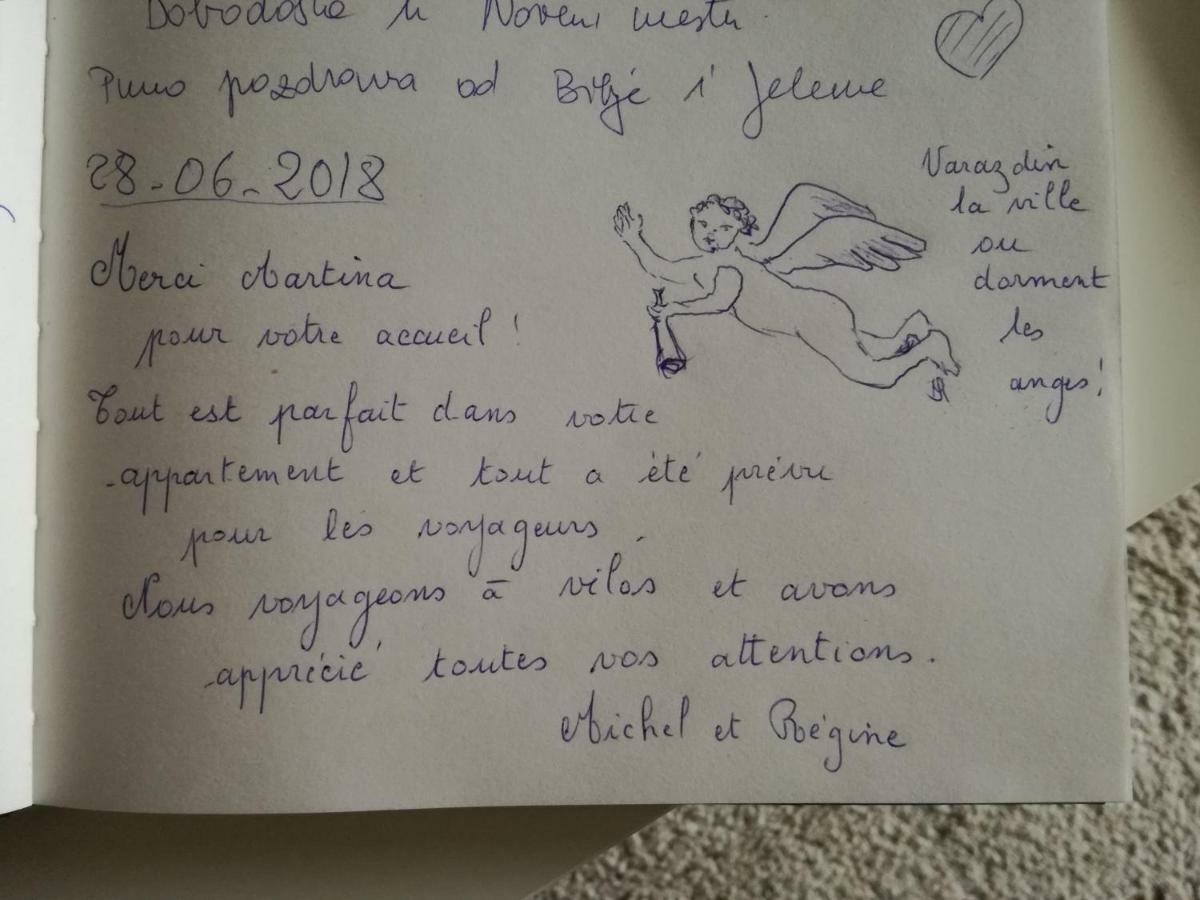 Dobodošle u Novem mestu.
Puno pozdrava od Bilje i Jelene
28-06-2018
Merci Martina
pour votre accueil !
Tout est parfait dans votre
appartement et tout a été prévu
pour les voyageurs.
Nous voyageons à vélos et avons
apprécié toutes vos attentions.
Michel et Régine
Varazdin
la ville
ou
dorment
les
anges !